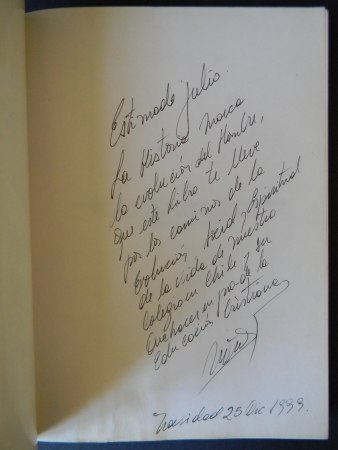 Estimado Julio.
La Historia marca
la evolución del Hombre,
que este Libro te lleve
por los caminos de la
Evolución Social y Espiritual
de la vida de nuestro
Colegio en Chile y su
Quehacer en pro de la
Educación Cristiana
Navidad 25 Dic 1999.